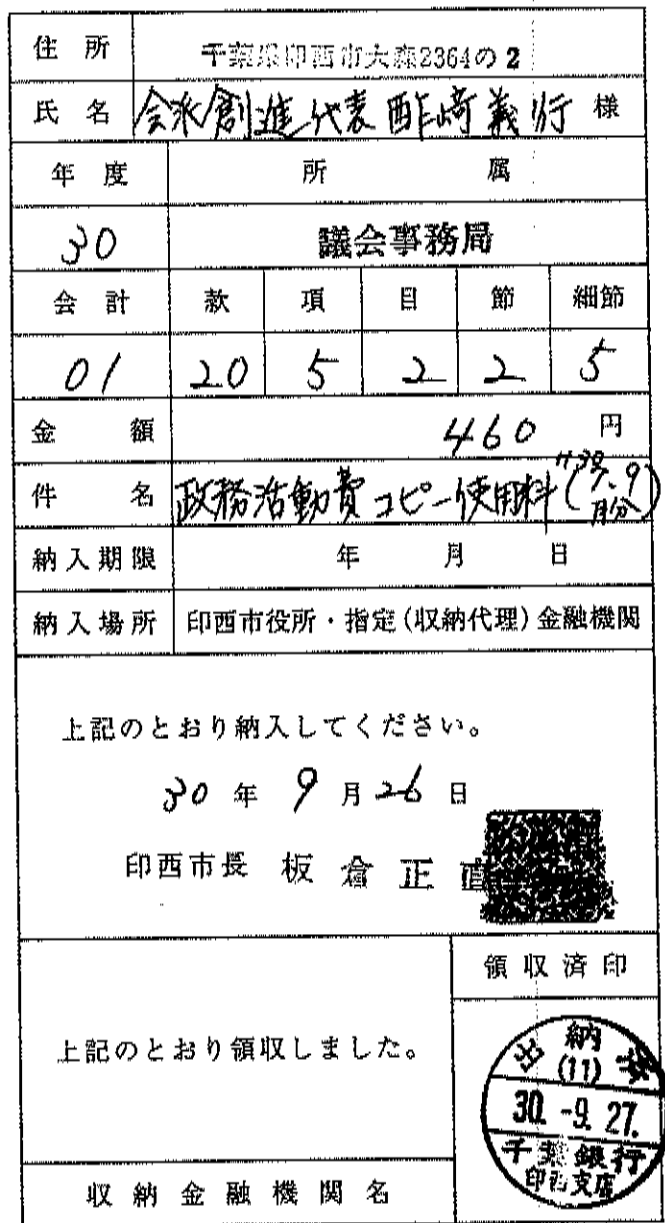 住所 千葉県印西市大森2364の2
氏名 会派創進代表 酢崎義行 様
年度 所属
30 議会事務局
会計 款 項 目 節 細節
01 20 5 2 2 5
金額 460 円
件名 政務活動費コピー使用料(H30 7、9月分)
納入期限 年 月 日
納入場所 印西市役所・指定(収納代理)金融機関
上記のとおり納入してください。
30年 9月26日
印西市長 板倉正直
領収済印
上記のとおり領収しました。
出納
(11)
30.-9.27.
千葉銀行
印西支店
収納金融機関名